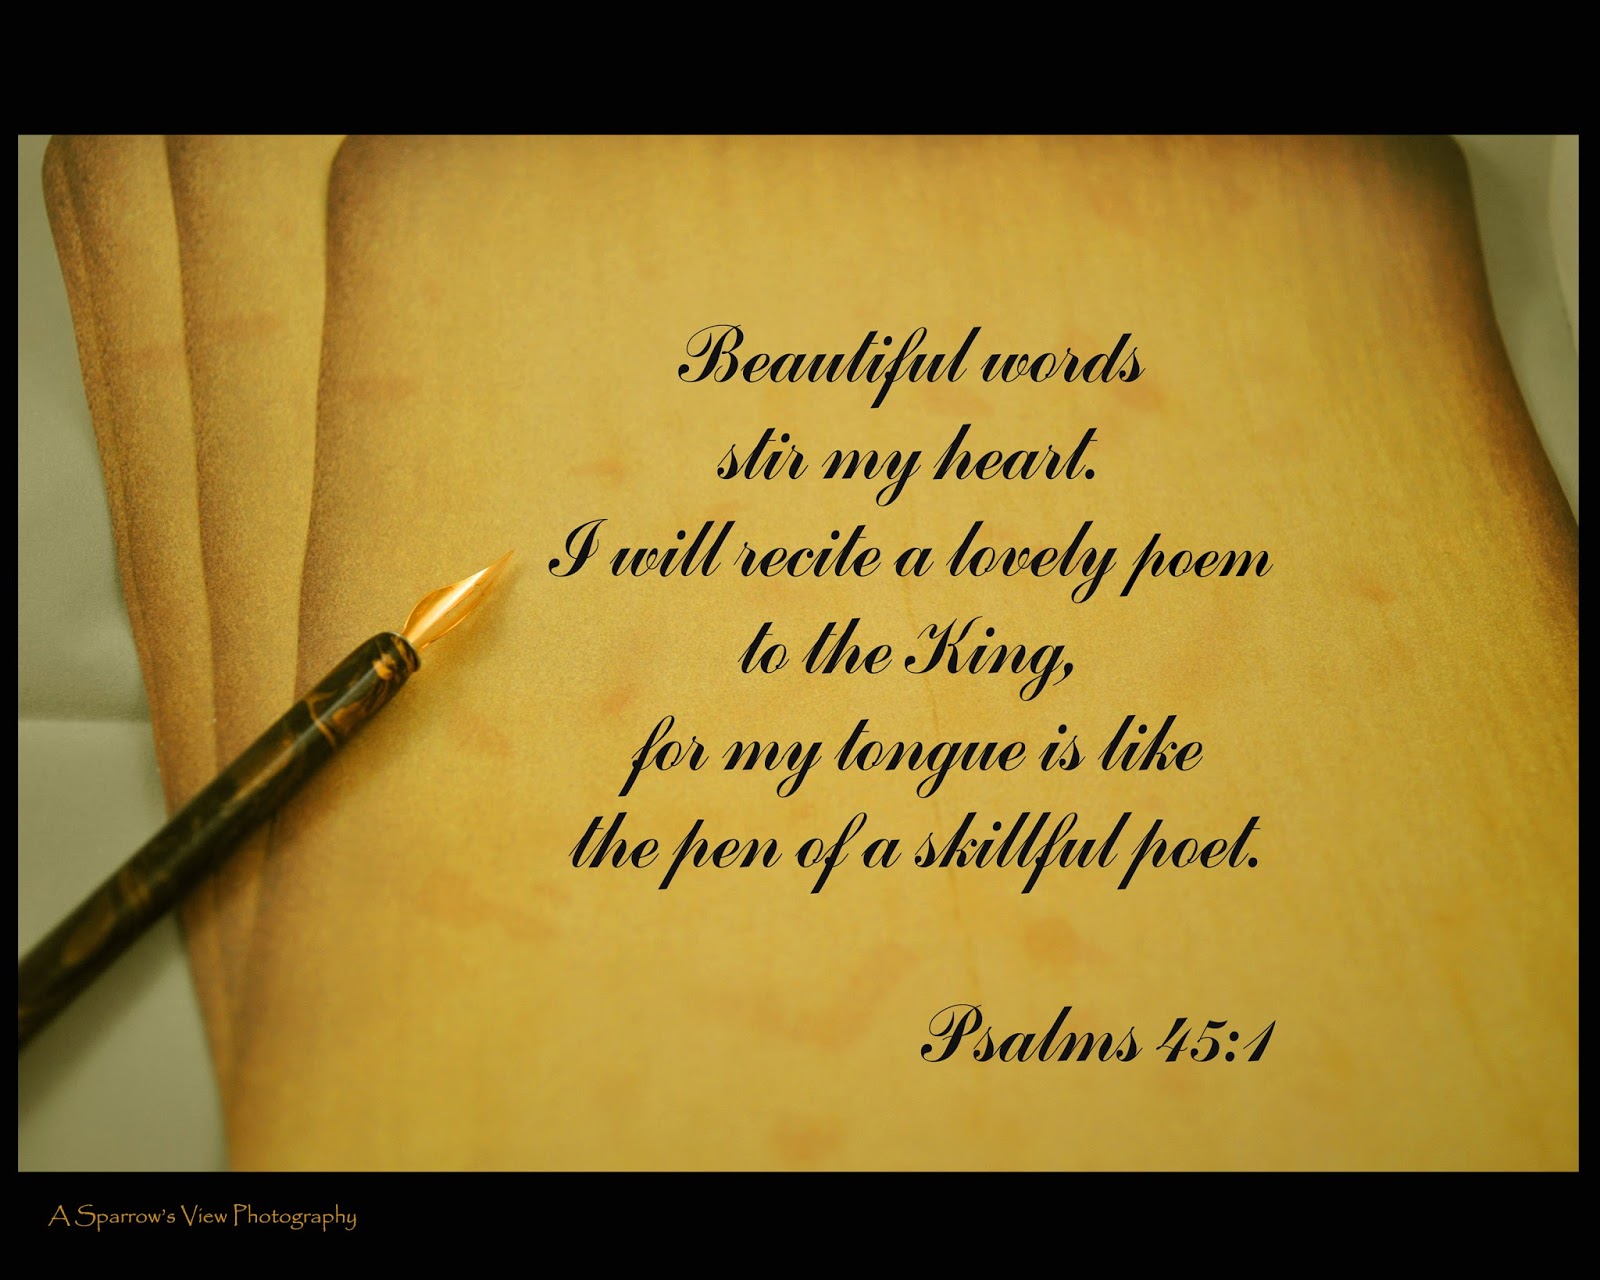 Beautiful words
stir my heart.
I will recite a lovely poem
to the King,
for my tongue is like
the pen of a skillful poet.
Psalms 45:1
A Sparrow's View Photography